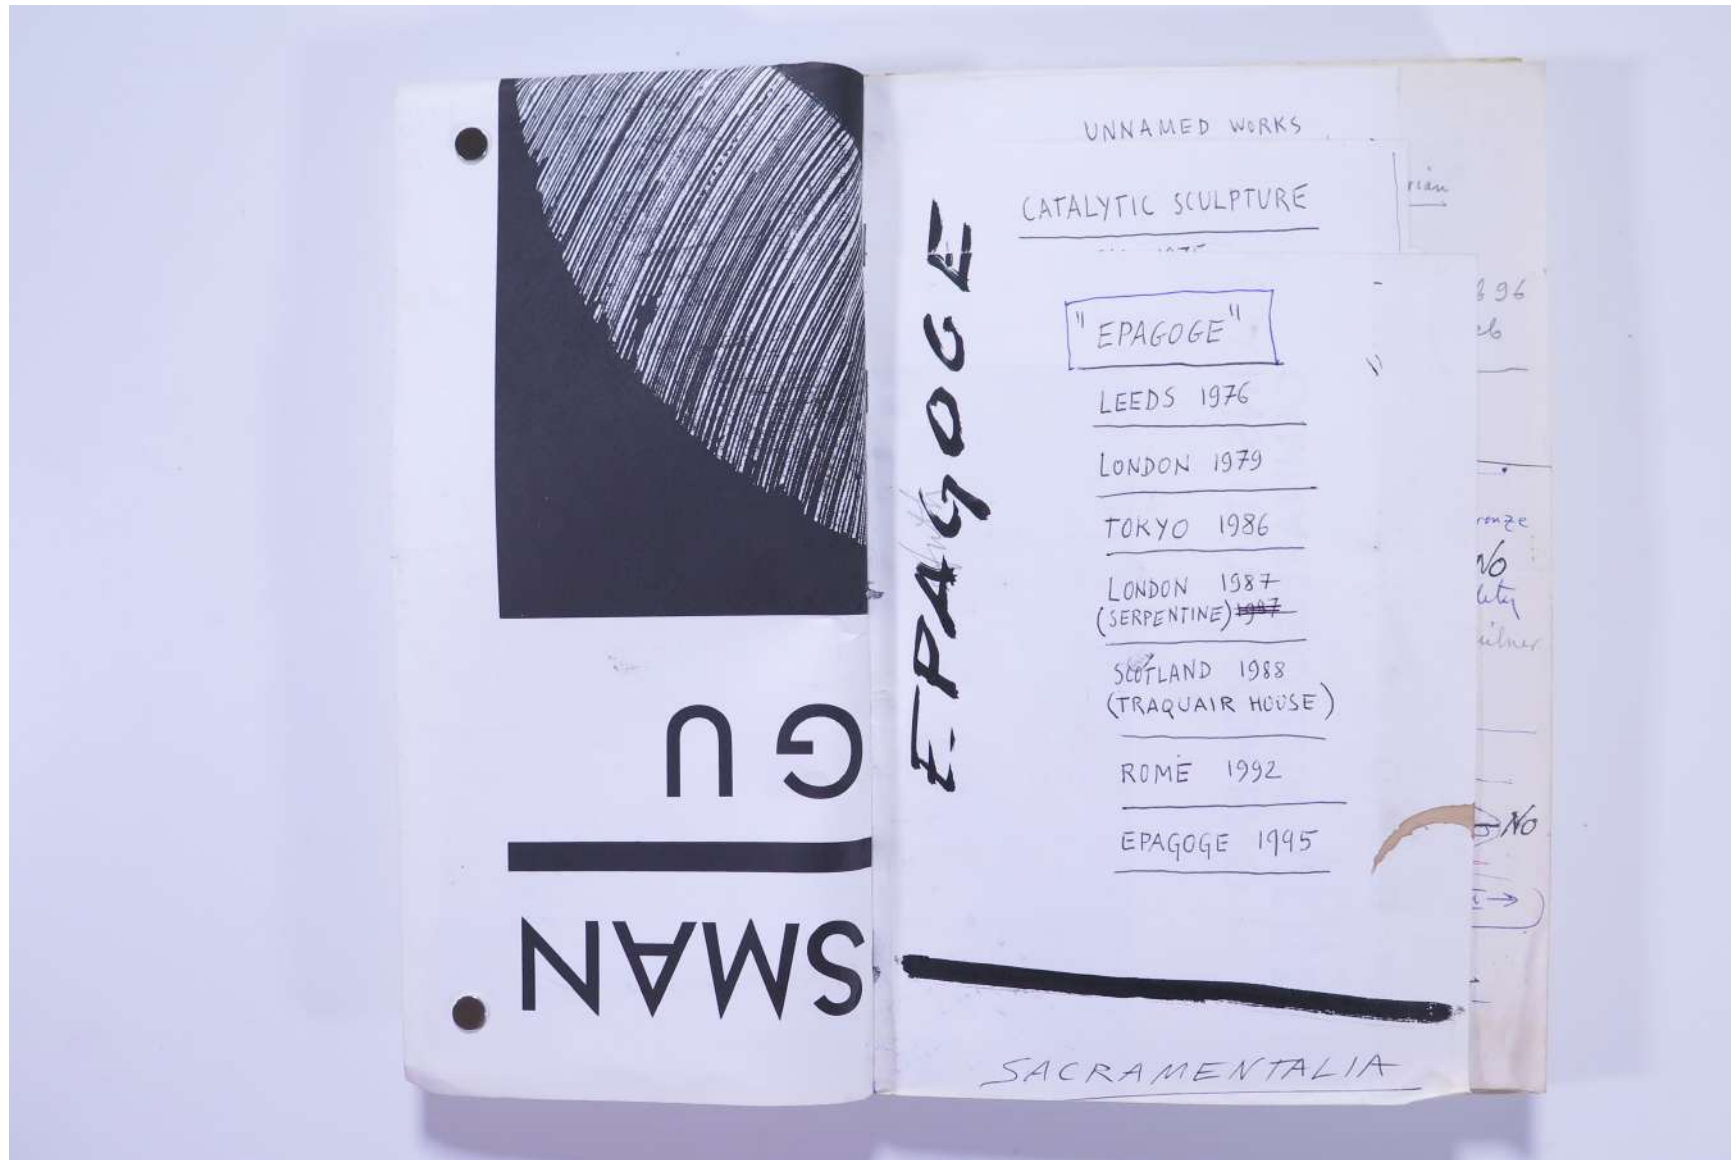 GU
SMAN
EPAGOGE
UNNAMED WORKS
CATALYTIC SCULPTURE
"EPAGOGE"
LEEDS 1976
LONDON 1979
TOKYO 1986
LONDON 1987
(SERPENTINE) 1987
SCOTLAND 1988
(TRAQUAIR HOUSE)
ROME 1992
EPAGOGE 1995
SACRAMENTALIA
96
No
No